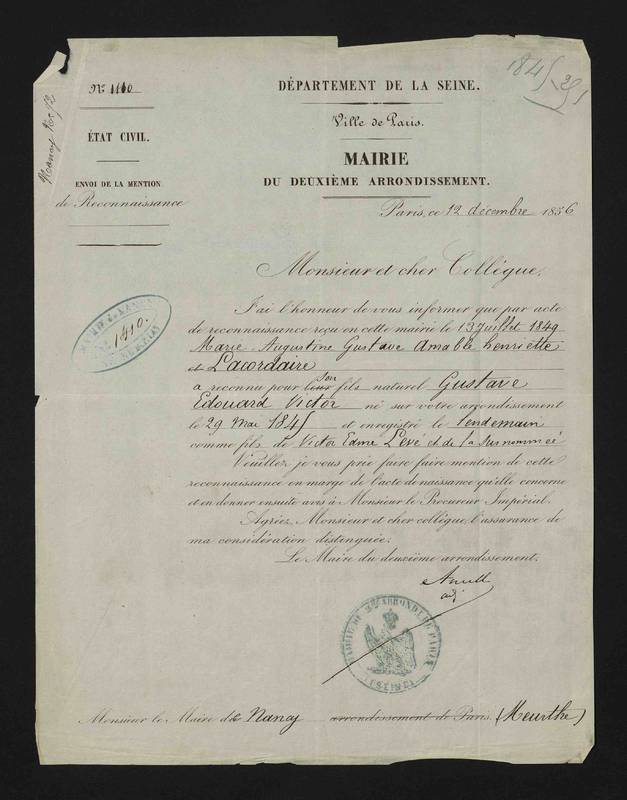 1845
29
Nancy
Nº 1160
ÉTAT CIVIL.
ENVOI DE LA MENTION
de Reconnaissance
DÉPARTEMENT DE LA SEINE.
Ville de Paris.
MAIRIE
DU DEUXIÈME ARRONDISSEMENT.
Paris, ce 12 décembre 1856
Monsieur et cher Collègue,
1410.
J'ai l'honneur de vous informer que par acte
de reconnaissance reçu en cette mairie le 13 Juillet 1849
Marie Augustine Gustave Amable henriette
Lacordaire
a reconnu pour leur son fils naturel Gustave
Edouard Victor né sur votre arrondissement
le 29 Mai 1845 et enregistré le lendemain
comme fils de Victor Edme Levé et de la Surnommée
Veuillez je vous prie faire faire mention de cette
reconnaissance en marge de l'acte de naissance qu'elle concerne
et en donner ensuite avis à Monsieur le Procureur Impérial.
Agréez, Monsieur et cher collègue, l'assurance de
ma considération distinguée.
Le Maire du deuxième arrondissement.
adj
MAIRIE DU 2me ARRONDT. DE PARIS
(SEINE)
Monsieur le Maire de Nancy arrondissement de Paris. (Meurthe)